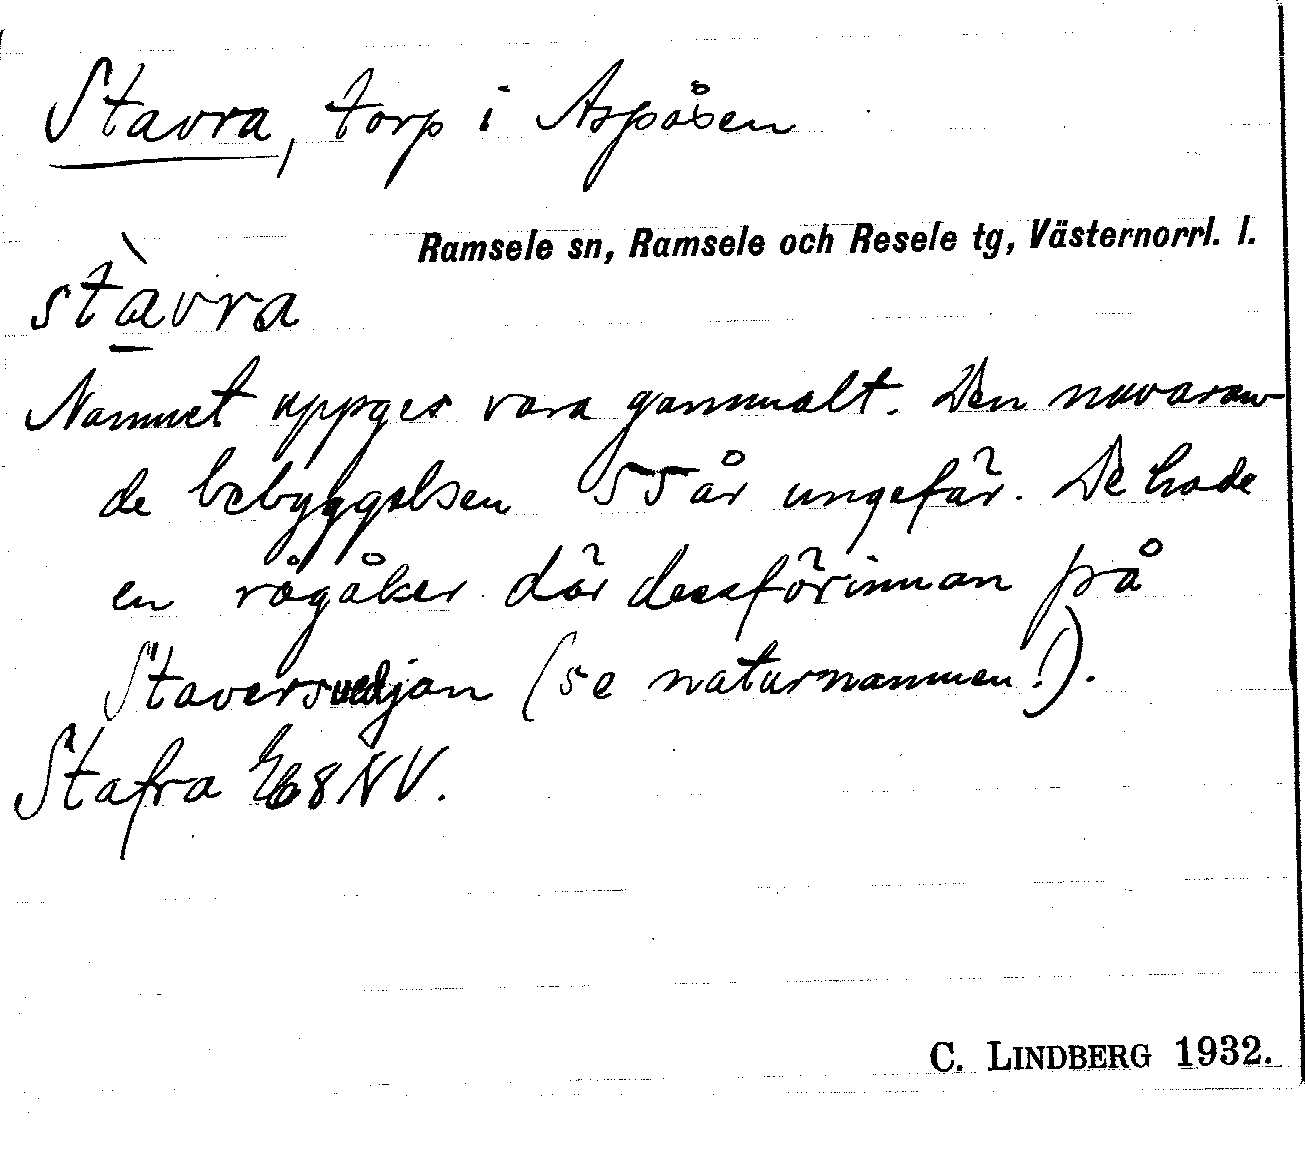 Stavra, torp i Aspåsen
Ramsele sn, Ramsele och Resele tg, Västernorrl. l.
stàvra
Namnet uppges vara gammalt. Den nuvaran-
de bebyggelsen 55 år ungefär. De hade
en rågåker där dessförinnan på
Staversvedjan (se naturnamnen!).
Stafra 68 NV.
C. LINDBERG 1932.